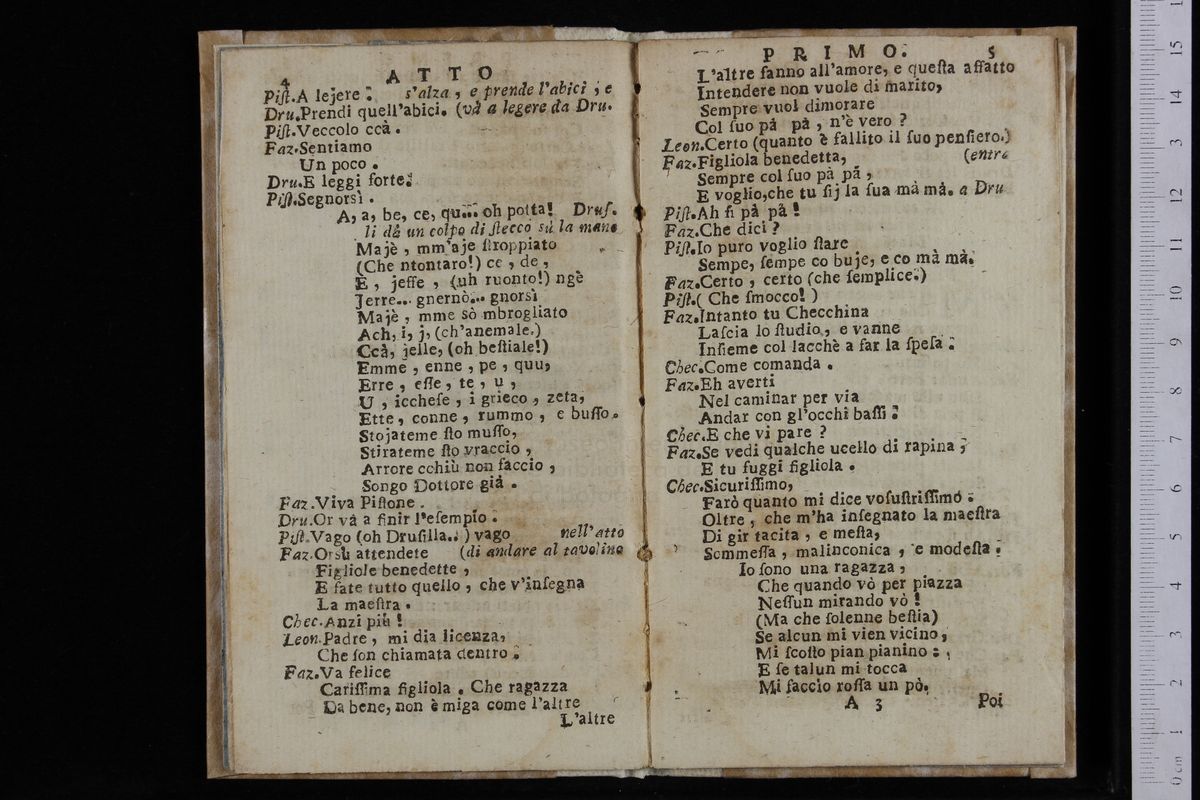 4 ATTO
Pist.A lejere: s'alza, e prende l'abicì, e
Dru.Prendi quell'abicì. (và a legere da Dru.
Pist.Veccolo ccà.
Faz.Sentiamo
Un poco.
Dru.E leggi forte.
Pist.Segnorsì.
A, a, be, ce, qu... oh potta! Drus.
li dà un colpo di stecco sù la mano
Majè, mm'aje stroppiato
(Che ntontaro!) ce, de,
E, jeffe, (uh ruonto!) ngè
Jerre... gnernò... gnorsì
Majè, mme sò mbrogliato
Ach, i, j, (ch'anemale.)
Ccà, jelle, (oh bestiale!)
Emme, enne, pe, quu,
Erre, esse, te, u,
U, icchese, i grieco, zeta,
Ette, conne, rummo, e busso.
Stojateme sto musso,
Stirateme sto vraccio,
Arrore cchiù non faccio,
Songo Dottore già.
Faz.Viva Pistone.
Dru.Or và a finir l'esempio.
Pist.Vago (oh Drusilla..) vago nell'atto
Faz.Orsù attendete (di andare al tavolino
Figliole benedette,
E fate tutto quello, che v'insegna
La maestra.
Chec.Anzi più!
Leon.Padre, mi dia licenza,
Che son chiamata dentro.
Faz.Va felice
Carissima figliola. Che ragazza
Da bene, non è miga come l'altre
L'altre
PRIMO. 5
L'altre fanno all'amore, e questa affatto
Intendere non vuole di marito,
Sempre vuol dimorare
Col suo pà pà, n'è vero?
Leon.Certo (quanto è fallito il suo pensiero.)
Faz.Figliola benedetta, (entra
Sempre col suo pà pà,
E voglio,che tu sij la sua mà mà. a Dru
Pist.Ah sì pà pà!
Faz.Che dici?
Pist.Io puro voglio stare
Sempe, sempe co buje, e co mà mà.
Faz.Certo, certo (che semplice.)
Pist.( Che smocco! )
Faz.Intanto tu Checchina
Lascia lo studio, e vanne
Insieme col lacchè a far la spesa.
Chec.Come comanda.
Faz.Eh averti
Nel caminar per via
Andar con gl'occhi bassi.
Chec.E che vi pare?
Faz.Se vedi qualche ucello di rapina,
E tu fuggi figliola.
Chec.Sicurissimo,
Farò quanto mi dice vosustrissimo.
Oltre, che m'ha insegnato la maestra
Di gir tacita, e mesta,
Sommessa, malinconica, e modesta.
Io sono una ragazza,
Che quando vò per piazza
Nessun mirando vò!
(Ma che solenne bestia)
Se alcun mi vien vicino,
Mi scosto pian pianino:
E se talun mi tocca
Mi faccio rossa un pò.
A 3 Poi